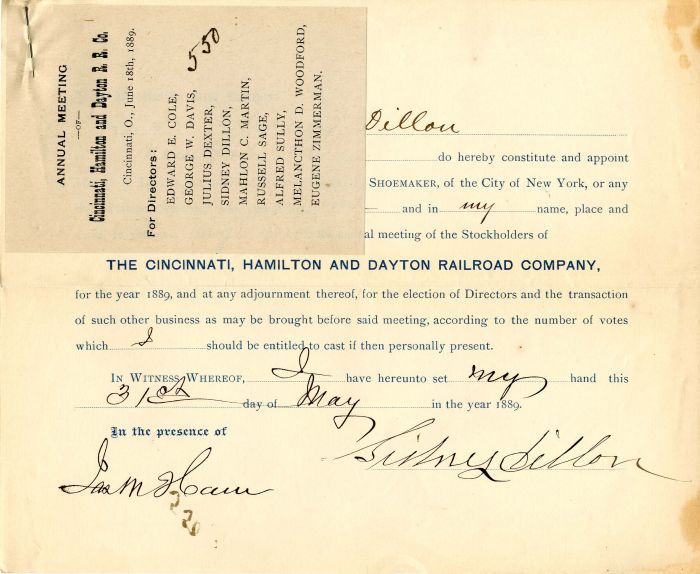 ANNUAL MEETING
—OF—
Cincinnati, Hamilton and Dayton R. R. Co.
Cincinnati, O., June 18th, 1889.
For Directors:
EDWARD E. COLE,
GEORGE W. DAVIS,
JULIUS DEXTER,
SIDNEY DILLON,
MAHLON C. MARTIN,
RUSSELL SAGE,
ALFRED SULLY,
MELANCTHON D. WOODFORD,
EUGENE ZIMMERMAN.
550
Dillon
do hereby constitute and appoint
SHOEMAKER, of the City of New York, or any
and in my name, place and
al meeting of the Stockholders of
THE CINCINNATI, HAMILTON AND DAYTON RAILROAD COMPANY,
for the year 1889, and at any adjournment thereof, for the election of Directors and the transaction
of such other business as may be brought before said meeting, according to the number of votes
which I should be entitled to cast if then personally present.
IN WITNESS WHEREOF, I have hereunto set my hand this
31st day of May in the year 1889.
In the presence of
Sidney Dillon
Jas M Ham